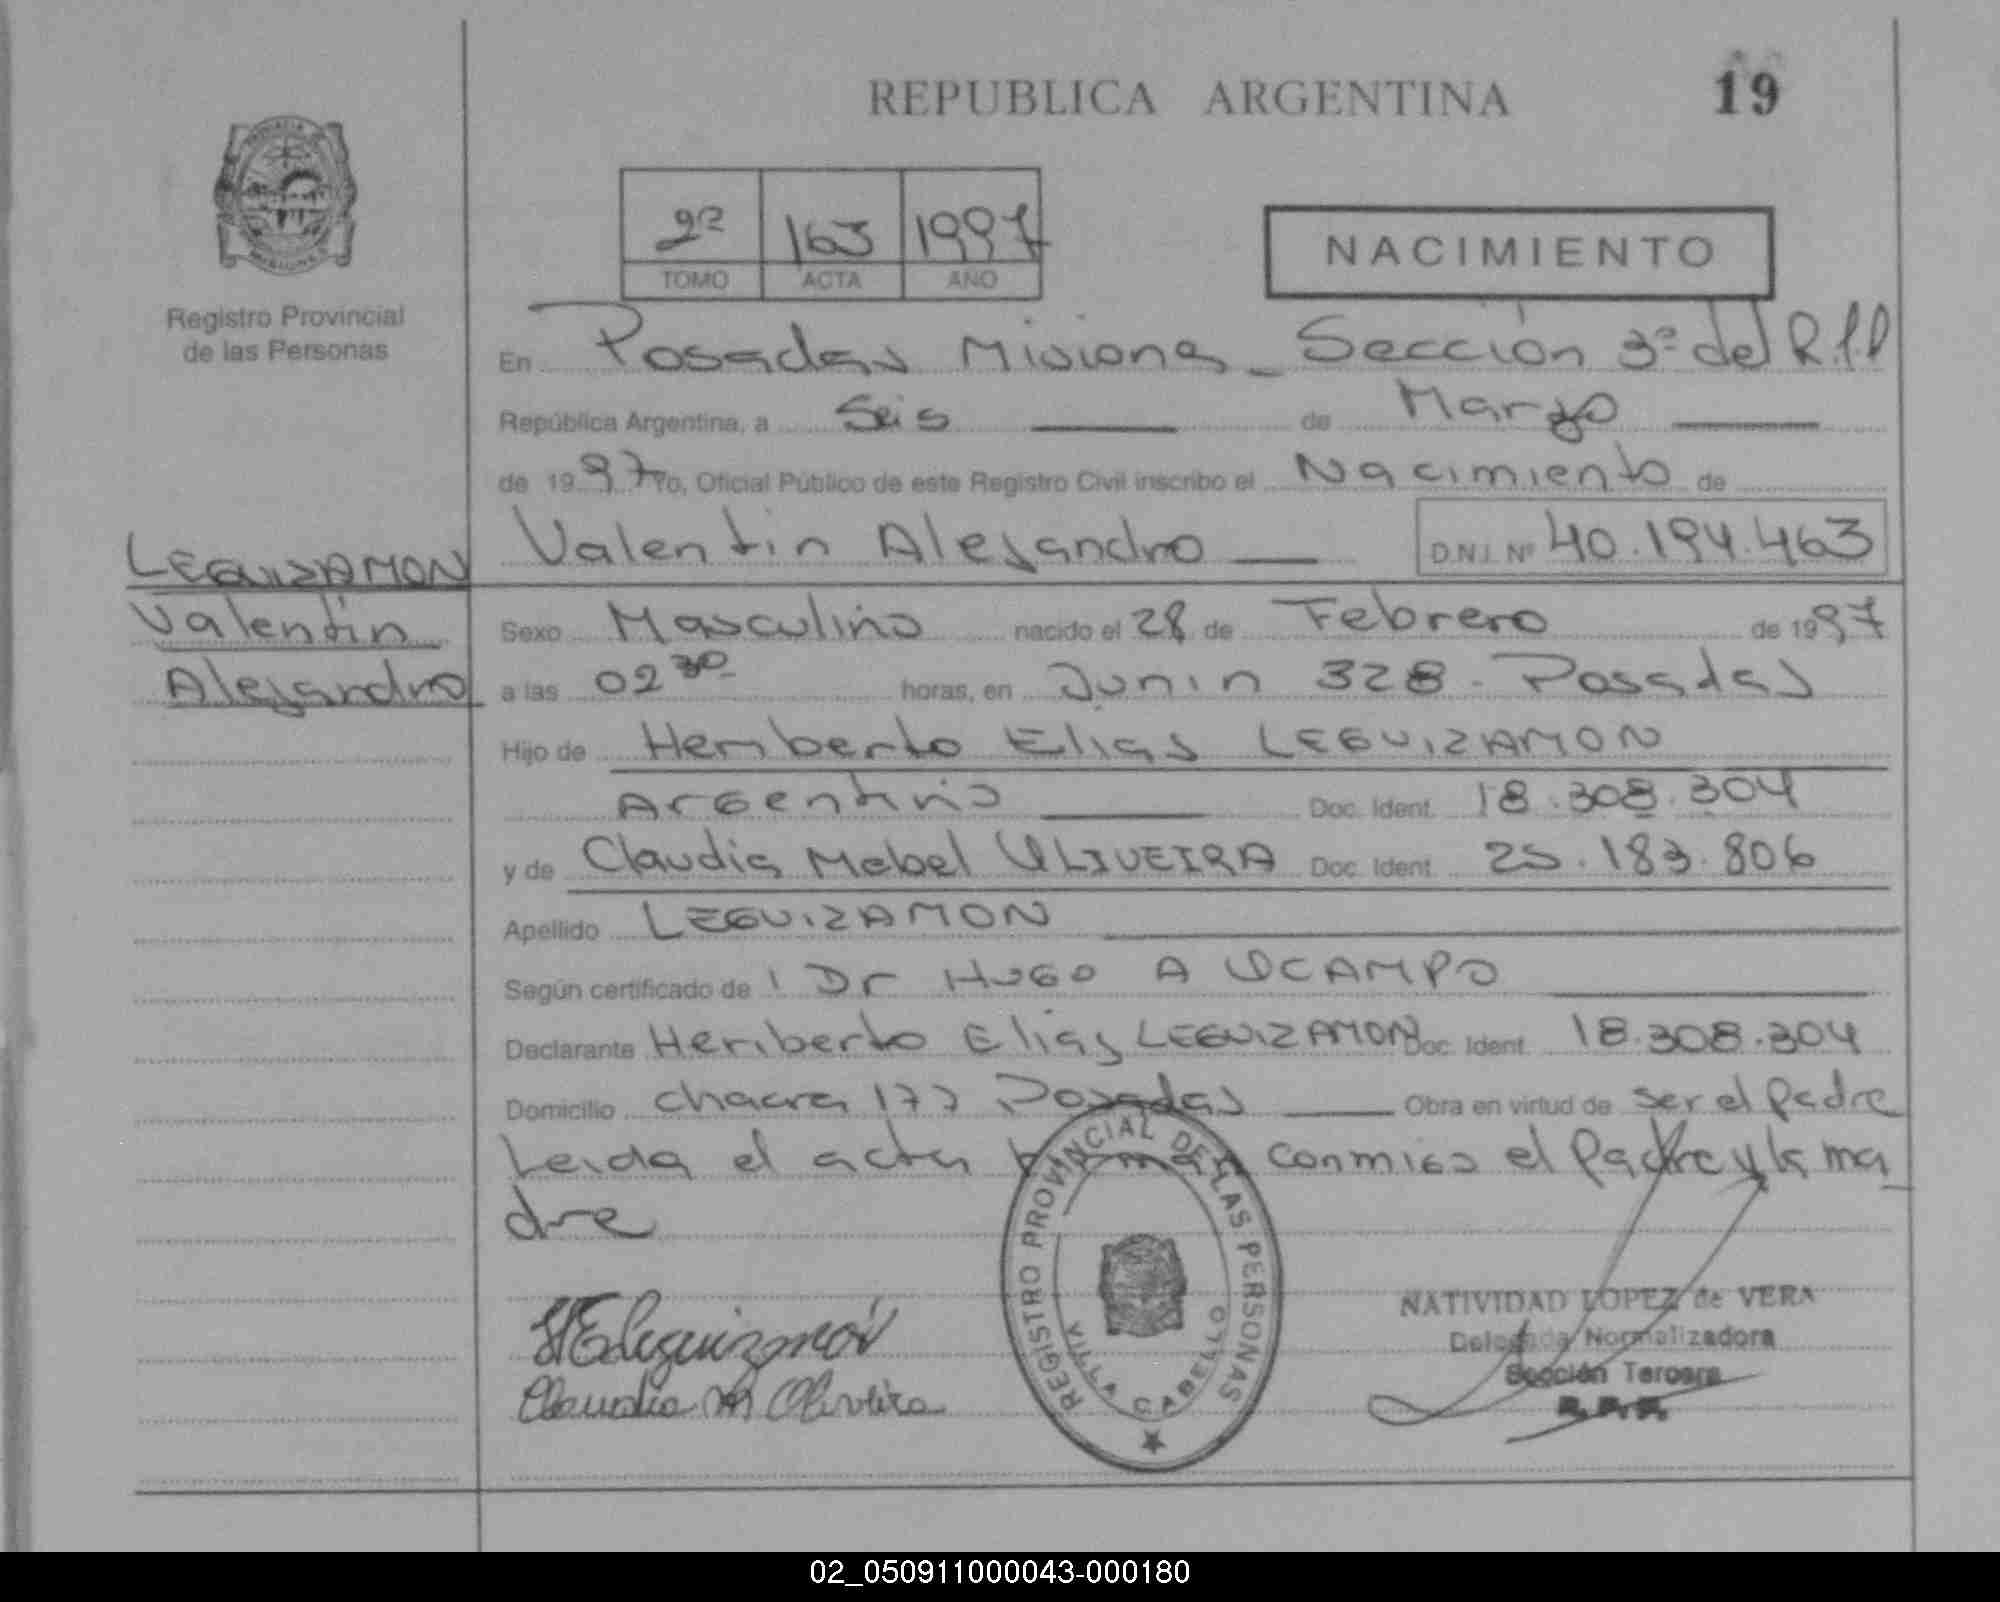 REPUBLICA ARGENTINA
19
2º 163 1997
TOMO ACTA AÑO
NACIMIENTO
Registro Provincial
de las Personas
En Posadas Misiones - Sección 3ª del R.P.P
República Argentina, a Seis de Marzo
de 1997 Yo, Oficial Público de este Registro Civil inscribo el Nacimiento de
Valentin Alejandro D.N.I. Nº 40.194.463
LEGUIZAMON
Valentin
Alejandro
Sexo Masculino nacido el 28 de Febrero de 1997
a las 02 30 horas, en Junin 328 - Posadas
Hijo de Heriberto Elias LEGUIZAMON
Argentino Doc. Ident. 18.308.304
y de Claudia Mabel OLIVEIRA Doc. Ident. 25.183.806
Apellido LEGUIZAMON
Según certificado de Dr Hugo A OCAMPO
Declarante Heriberto Elias LEGUIZAMON Doc. Ident. 18.308.304
Domicilio chacra 177 Posadas Obra en virtud de ser el padre
Leida el acta firman conmigo el padre y la ma
dre
REGISTRO PROVINCIAL DE LAS PERSONAS
VILLA CABELLO
HELeguizamón
Claudia M Oliveira
NATIVIDAD LOPEZ de VERA
Delegada Normalizadora
Sección Tercera
R. P. P.
PROVINCIA DE
MISIONES
02_050911000043-000180